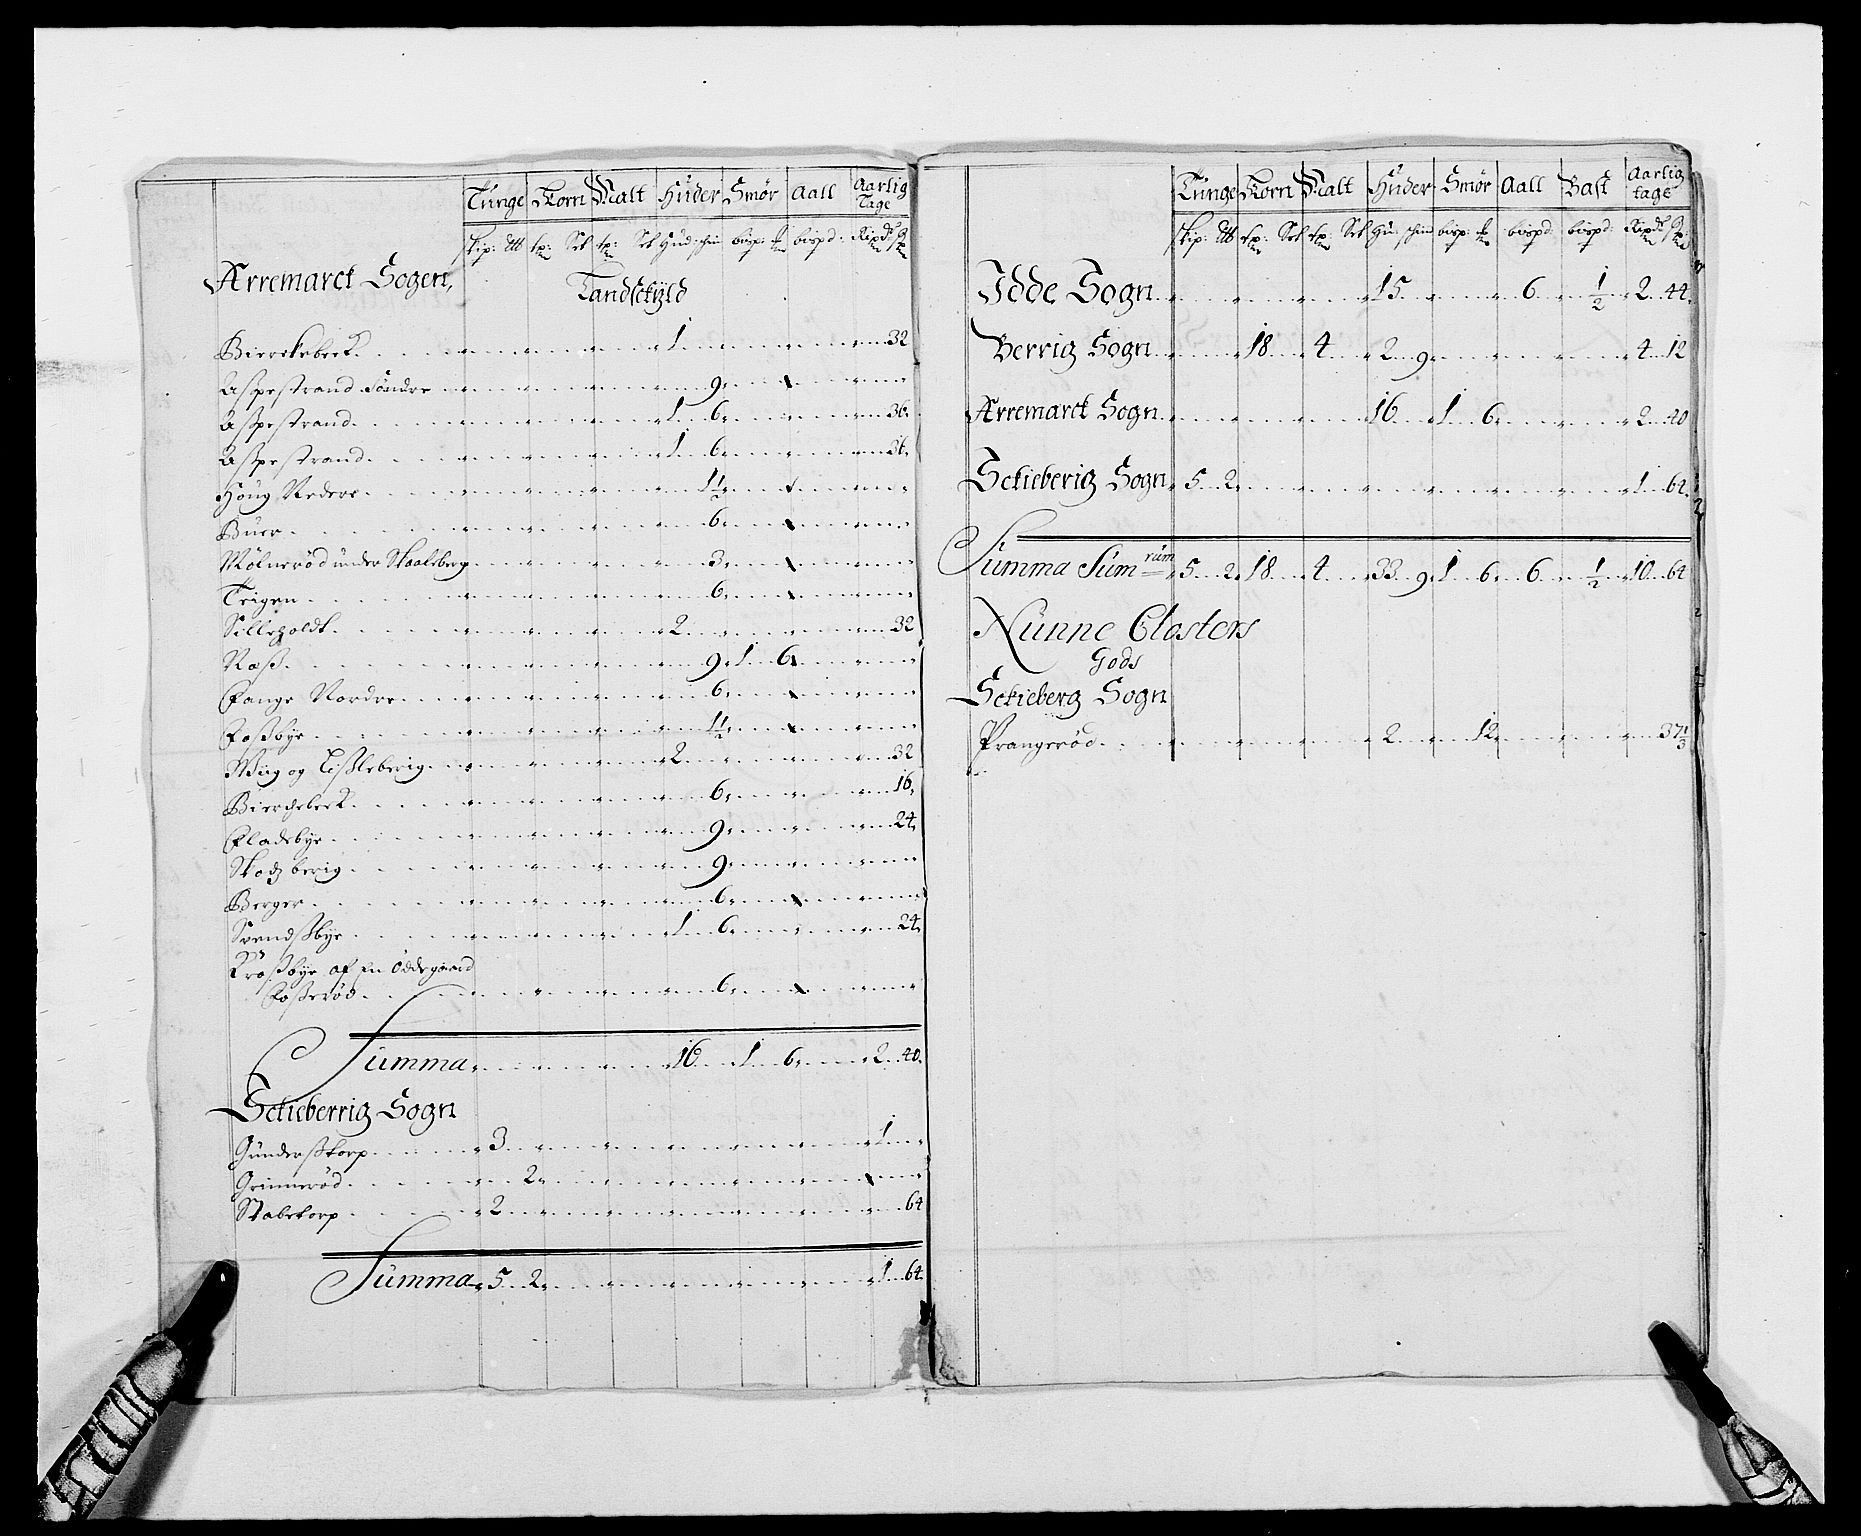 Tunge Korn Malt Huder Smør Aall Aarlig Tage
Arremarck Sogen,
Landskyld
Bierckebeck 1 32
Asspestrand Søndre 9
Asspestrand 1 6 36
Asspestrand 1 6 36
Houg Nedere 1½
Buer 6
Mølnerød under Skaaleberg 3
Trigen 6
Sillepoldt 2 32
Næss 9 1 6
Fange Nordre 6
Fossbye 1½
Wiig og Lissleberig 2 32
Bierchebeck 6 16
Fladebye 9 24
Skodz berig 9
Berger 6
Svendssbye 1 6 24
Krossbye af En Ødegaard
Fosserød 6
Summa 16 1 6 2 40
Sckieberrig Sogn
Gunderssborp 3 1
Grimmerød 2
Skabekorp 2 64
Summa 5 2 1 64
Tunge Korn Malt Huder Smør Aall Bast Aarlig tage
Idde Sogn 15 6 ½ 2 44
Berrig Sogn 18 4 2 9 4 12
Arremarck Sogn 16 1 6 2 40
Sckieberig Sogn 5 2 1 64
Summa Sum̄arum 5 2 18 4 33 9 1 6 6 ½ 10 64
Nunne Closters
Gods
Sckieberg Sogn
Prangerød 2 12 37⅓